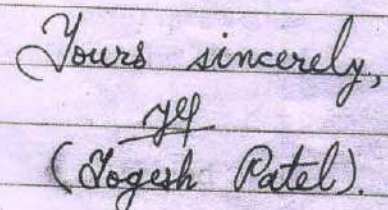 Yours sincerely,
YP
(Yogesh Patel).